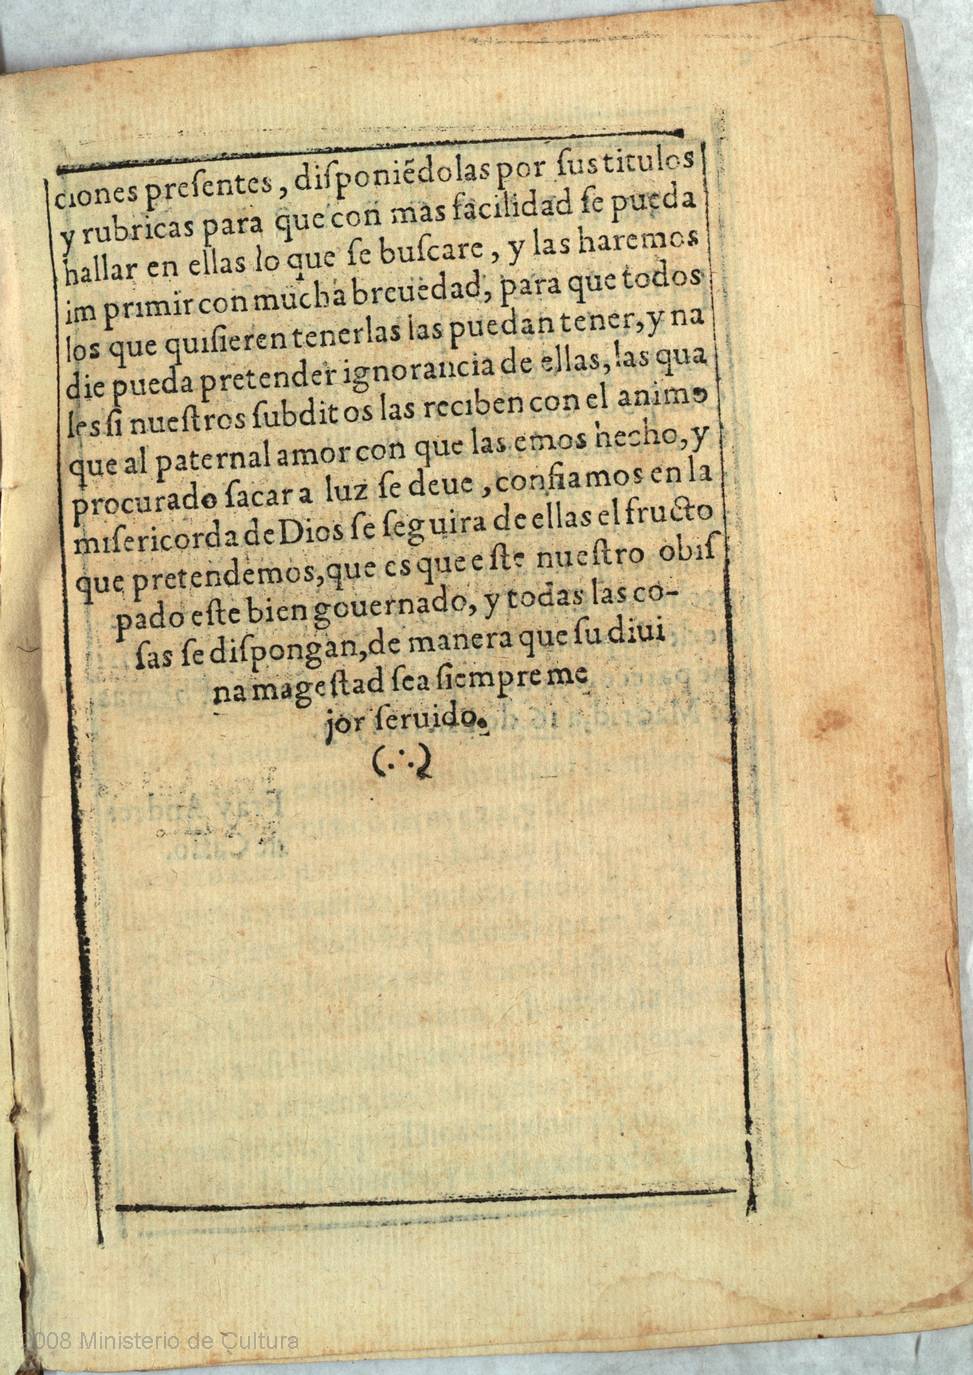 ciones preſentes, diſponiẽdolas por ſus titulos
y rubricas para que con mas facilidad ſe pueda
hallar en ellas lo que ſe buſcare, y las haremos
im primir con mucha breuedad, para que todos
los que quiſieren tenerlas las puedan tener, y na
die pueda pretender ignorancia de ellas, las qua
les ſi nueſtros ſubditos las reciben con el animo
que al paternal amor con que las emos hecho, y
procurado ſacar a luz ſe deue, confiamos en la
miſericorda de Dios ſe ſeguira de ellas el fructo
que pretendemos, que es que eſte nueſtro obiſ
pado eſte bien gouernado, y todas las co-
ſas ſe diſpongan, de manera que ſu diui
na mageſtad ſea ſiempre me
jor ſeruido.
(.·.)
2008 Ministerio de Cultura